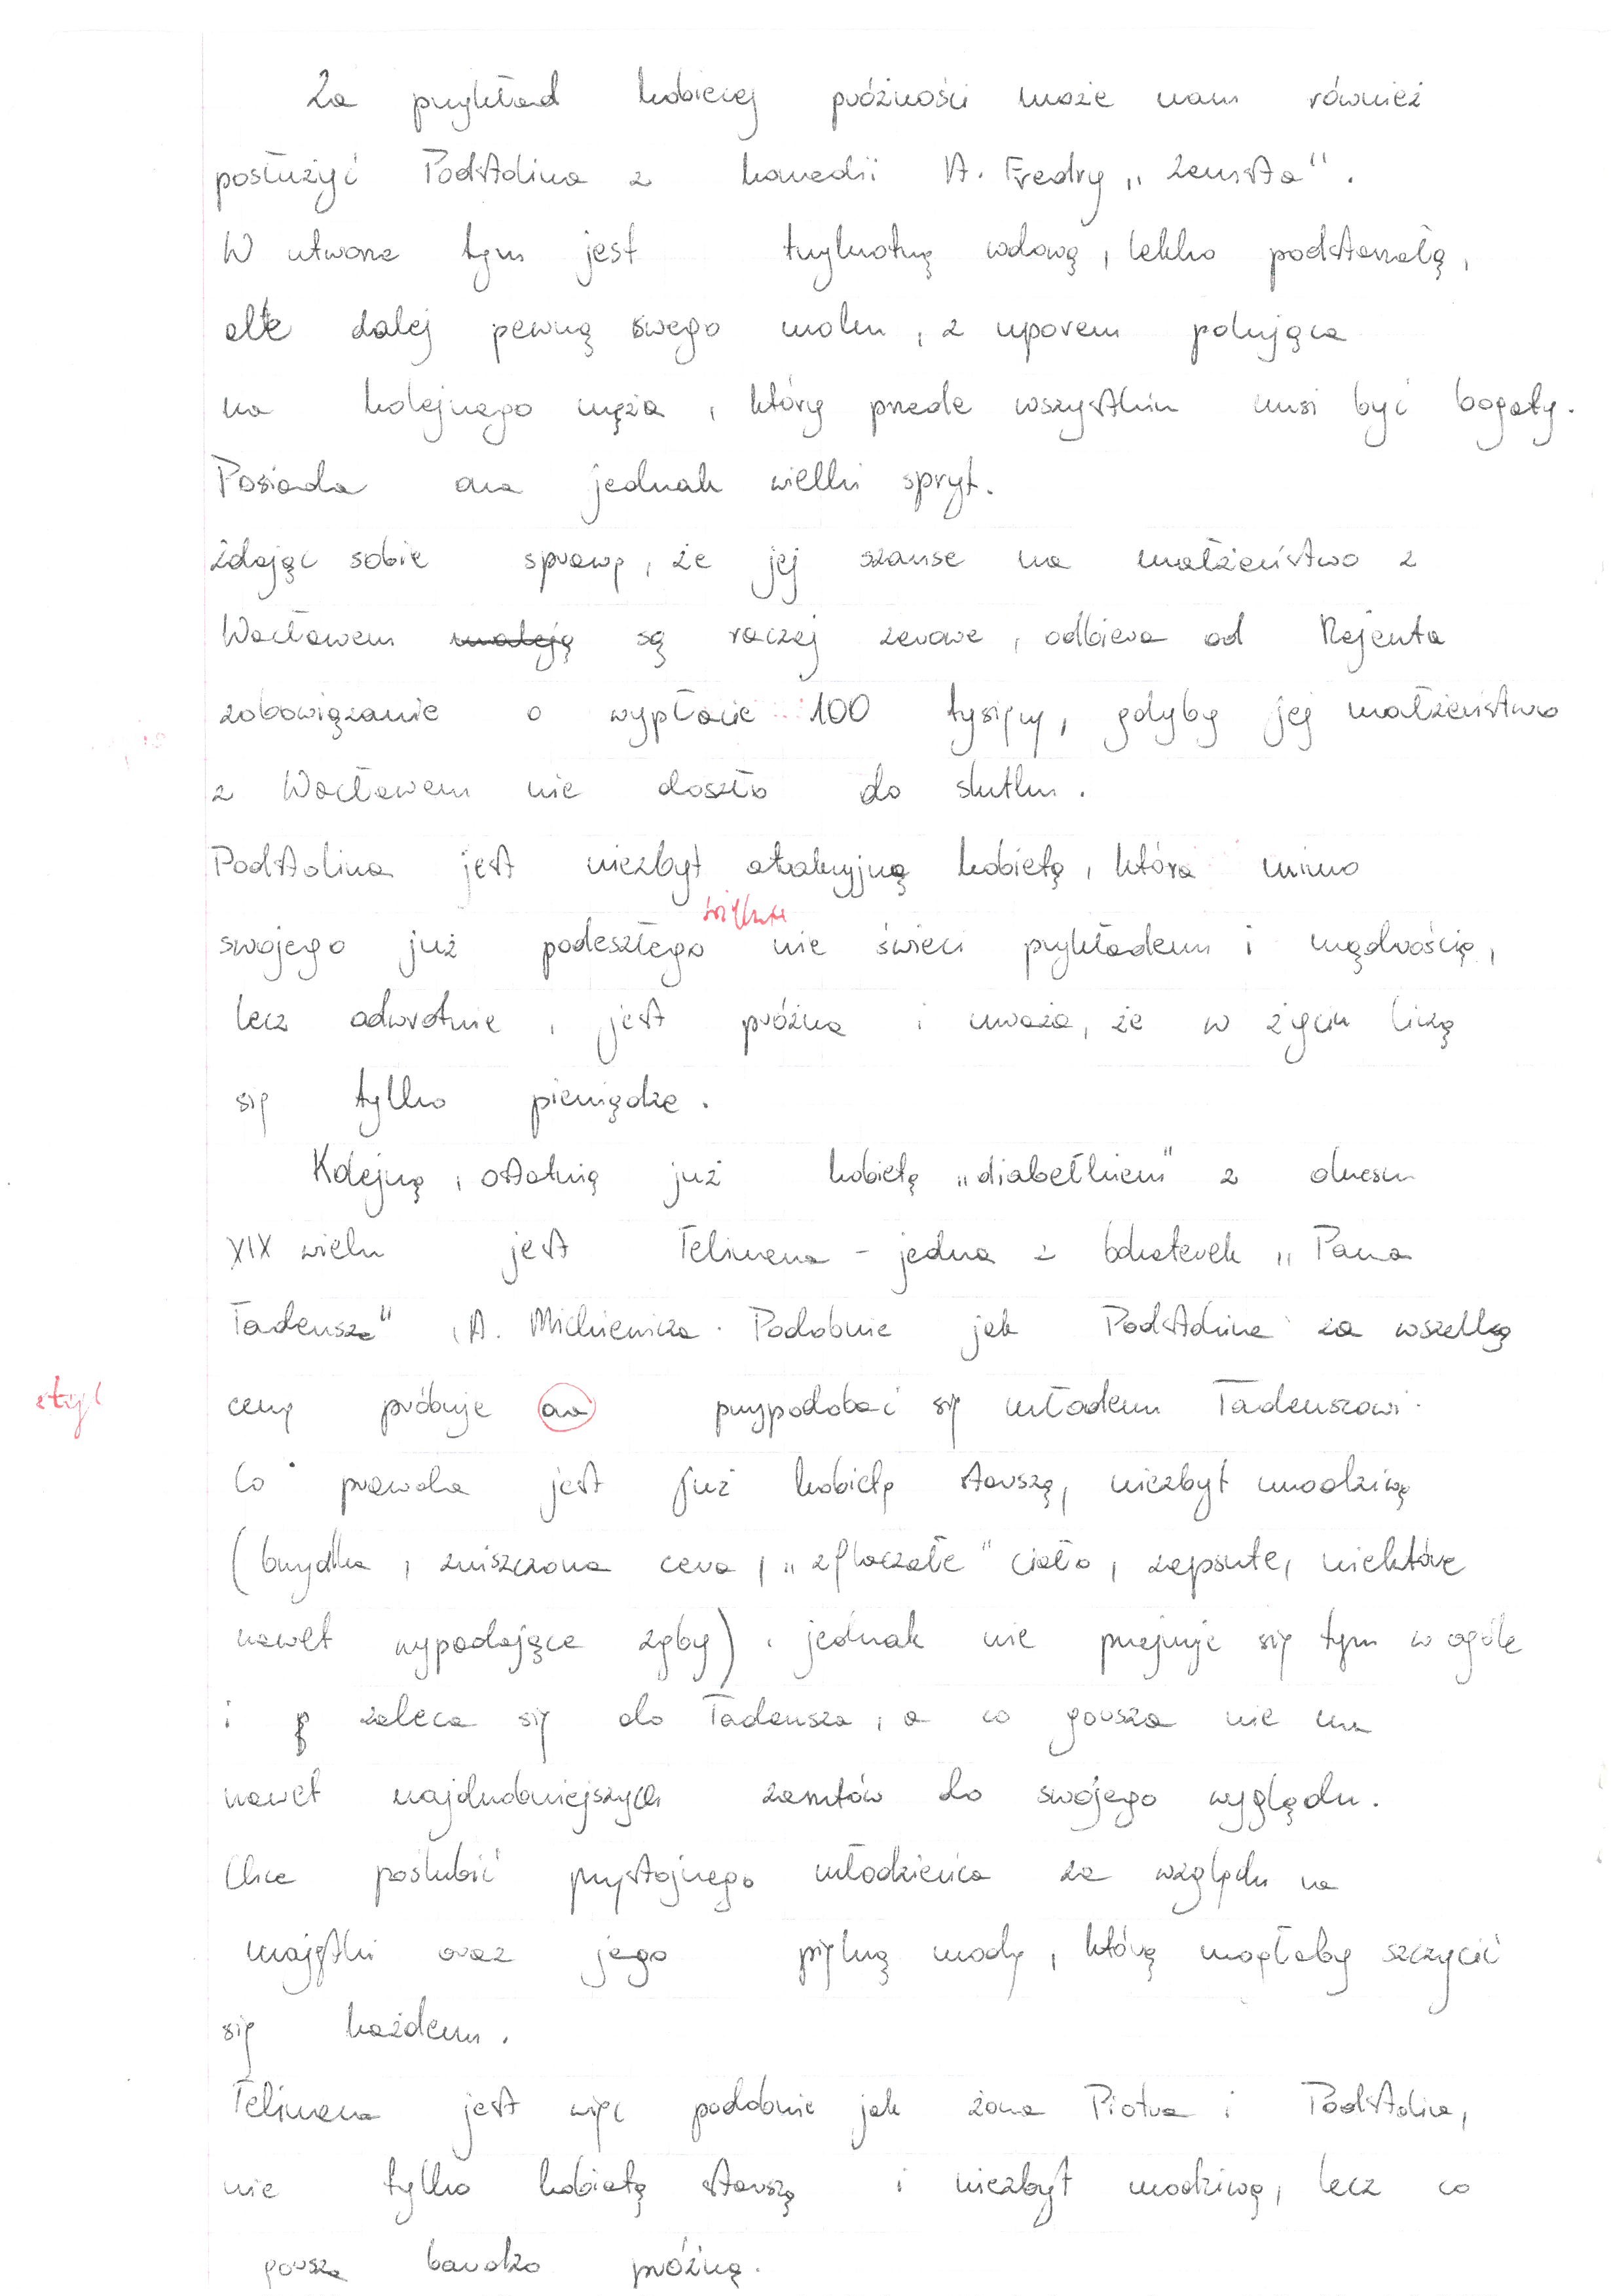 Za przykład kobiecej próżności może nam również
posłużyć Podstolina z komedii A. Fredry „Zemsta".
W utworze tym jest trzykrotną wdową, lekko podstarzałą,
ale dalej pewną swego uroku, z uporem polująca
na kolejnego męża, który przede wszystkim musi być bogaty.
Posiada ona jednak wielki spryt.
Zdając sobie sprawę, że jej szanse na małżeństwo z
Wacławem maleją są raczej zerowe, odbiera od Rejenta
zobowiązanie o wypłacie 100 tysięcy, gdyby jej małżeństwo
z Wacławem nie doszło do skutku.
Podstolina jest niezbyt atrakcyjną kobietą, która mimo
swojego już podeszłego wieku nie świeci przykładem i mądrością,
lecz odwrotnie, jest próżna i uważa, że w życiu liczą
się tylko pieniądze.
Kolejną i ostatnią już kobietą „diabełkiem" z okresu
XIX wieku jest Telimena - jedna z bohaterek „Pana
Tadeusza" A. Mickiewicza. Podobnie jak Podstolina za wszelką
styl
cenę próbuje ona przypodobać się młodemu Tadeuszowi.
Co prawda jest już kobietą starszą, niezbyt urodziwą
(brzydka, zniszczona cera, „sflaczałe" ciało, zepsute, niektóre
nawet wypadające zęby), jednak nie przejmuje się tym w ogóle
i zaleca się do Tadeusza, a co gorsza nie ma
nawet najdrobniejszych zarzutów do swojego wyglądu.
Chce poślubić przystojnego młodzieńca ze względu na
majątki oraz jego piękną urodę, którą mogłaby szczycić
się każdemu.
Telimena jest więc podobnie jak żona Piotra i Podstolina,
nie tylko kobietą starszą i niezbyt urodziwą, lecz co
gorsza bardzo próżną.